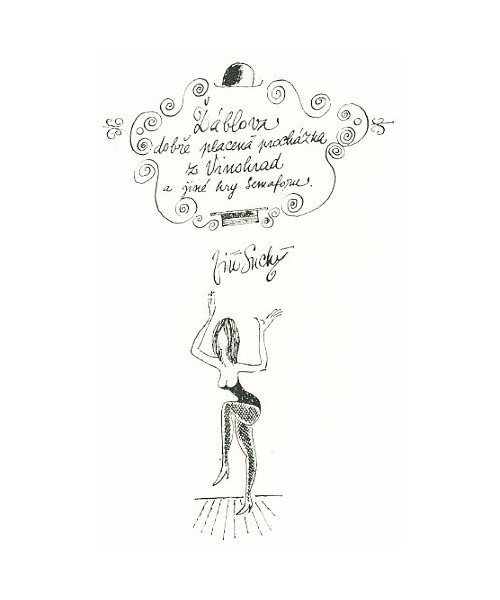 Žáblova
dobře placená procházka
z Vinohrad
a jiné hry Semaforu.
Jiří Suchý